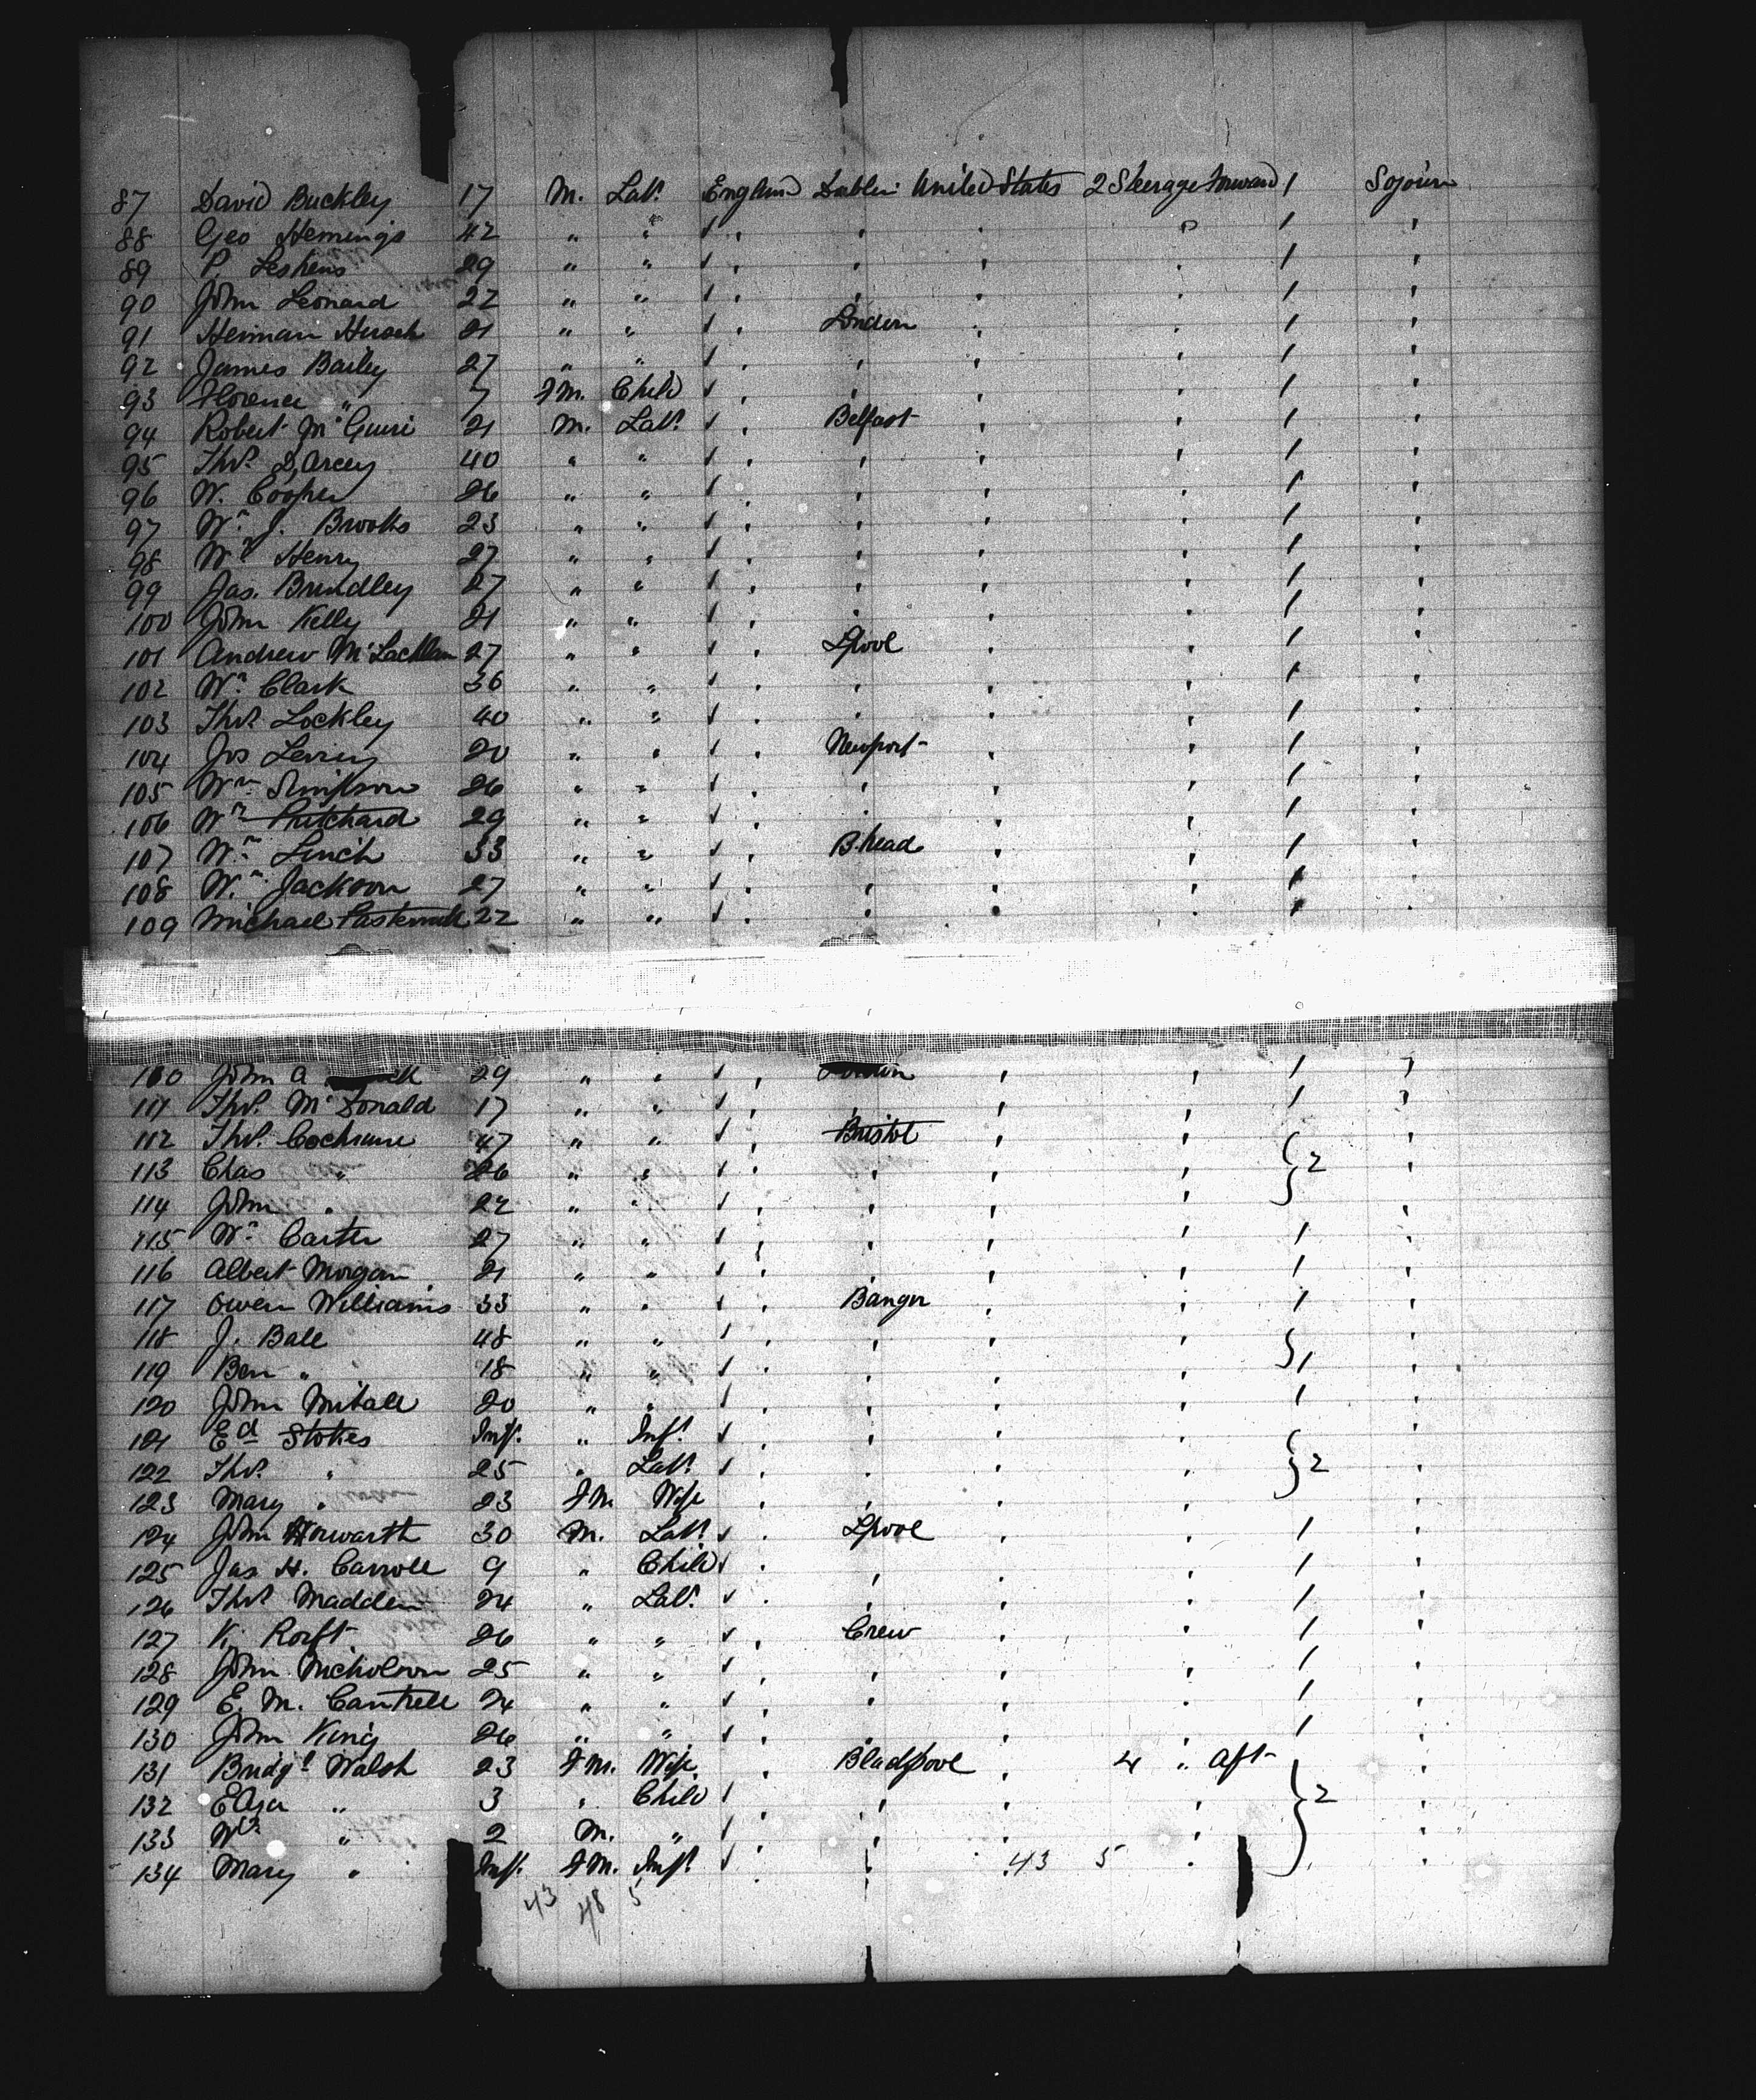 87 David Buckley 17 M. Labr England Dublin United States 2 Steerage Forward 1 Sojourn
88 Geo Hemings 42 " " " " " " 1 "
89 P. Leshens 29 " " " " " " 1 "
90 John Leonard 22 " " " " " " 1 "
91 Herman Hirsch 21 " " " London " " 1 "
92 James Bailey 27 " " " " " " 1 "
93 Florence " 7 FM. Child " " " " 1 "
94 Robert McGuire 21 M. Labr " Belfast " " 1 "
95 Thos D'Arcey 40 " " " " " " 1 "
96 W. Cooper 26 " " " " " " 1 "
97 Wm J. Brooks 23 " " " " " " 1 "
98 Wm Henry 27 " " " " " " 1 "
99 Jas. Brindley 27 " " " " " " 1 "
100 John Kelly 21 " " " " " " 1 "
101 Andrew McLachlan 27 " " " Lpool " " 1 "
102 Wm Clark 36 " " " " " " 1 "
103 Thos Lockley 40 " " " " " " 1 "
104 Jos 20 " " " Newport " " 1 "
105 Wm Simpson 26 " " " " " " 1 "
106 Wm Pritchard 29 " " " " " " 1 "
107 Wm Linch 33 " " " B.head " " 1 "
108 Wm Jackson 27 " " " " " " 1 "
109 Michael 22 " " " " " " 1 "
110 John A 29 " " " " " 1 "
111 Thos McDonald 17 " " " " " " 1 "
112 Thos Cochrane 47 " " " Bristol " " "
113 Chas " 26 " " " " " " } 2 "
114 John " 22 " " " " " " "
115 Wm Carter 27 " " " " " " 1 "
116 Albert Morgan 21 " " " " " " 1 "
117 Owen Williams 33 " " " Bangor " " 1 "
118 J. Ball 48 " " " " " " "
119 Ben " 18 " " " " " " } 1 "
120 John Mitall 20 " " " " " " 1 "
121 Ed Stokes Inft. " Inft " " " " "
122 Thos " 25 " Labr " " " " } 2 "
123 Mary " 23 FM Wife " " " " "
124 John Howarth 30 M. Labr " Lpool " " 1 "
125 Jas H. Carroll 9 " Child " " " " 1 "
126 Thos Madden 24 " Labr " " " " 1 "
127 26 " " " Crew " " 1 "
128 John Nicholson 25 " " " " " " 1 "
129 E. M. Cantrell 24 " " " " " " 1 "
130 John King 26 " " " " " " 1 "
131 Bridgt Walsh 23 FM. Wife " Bladpool " 4 " Aft
132 Eliza " 3 " Child " " " " } 2 "
133 Wm " 2 M. " " " " " "
134 Mary " Inft. FM. Inft " " 43 5 " "
43 48 5